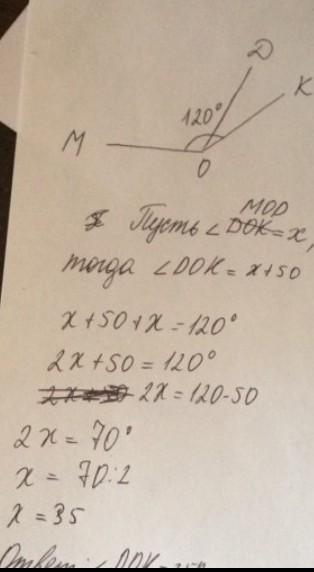 D
K
120°
M
O
MOD
Пусть ∠ DOK = x,
тогда ∠DOK = x+50
x+50+x=120°
2x+50=120°
2x+50 2x=120-50
2x=70°
x = 70:2
x = 35
Ответ: ∠DOK